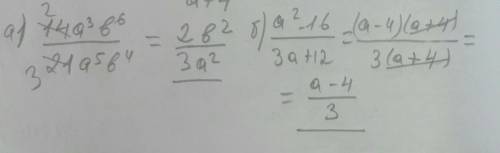 а) 14a³b⁶ / 21a⁵b⁴ = 2b² / 3a² б) a² - 16 / 3a + 12 = (a-4)(a+4) / 3(a+4) =
= a-4 / 3